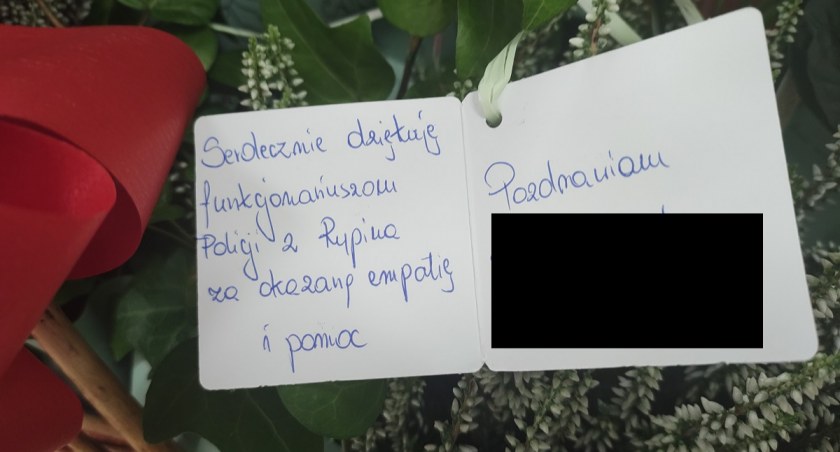 Serdecznie dziękuję
funkcjonariuszom
Policji z Rypina
za okazaną empatię
i pomoc
Pozdrawiam